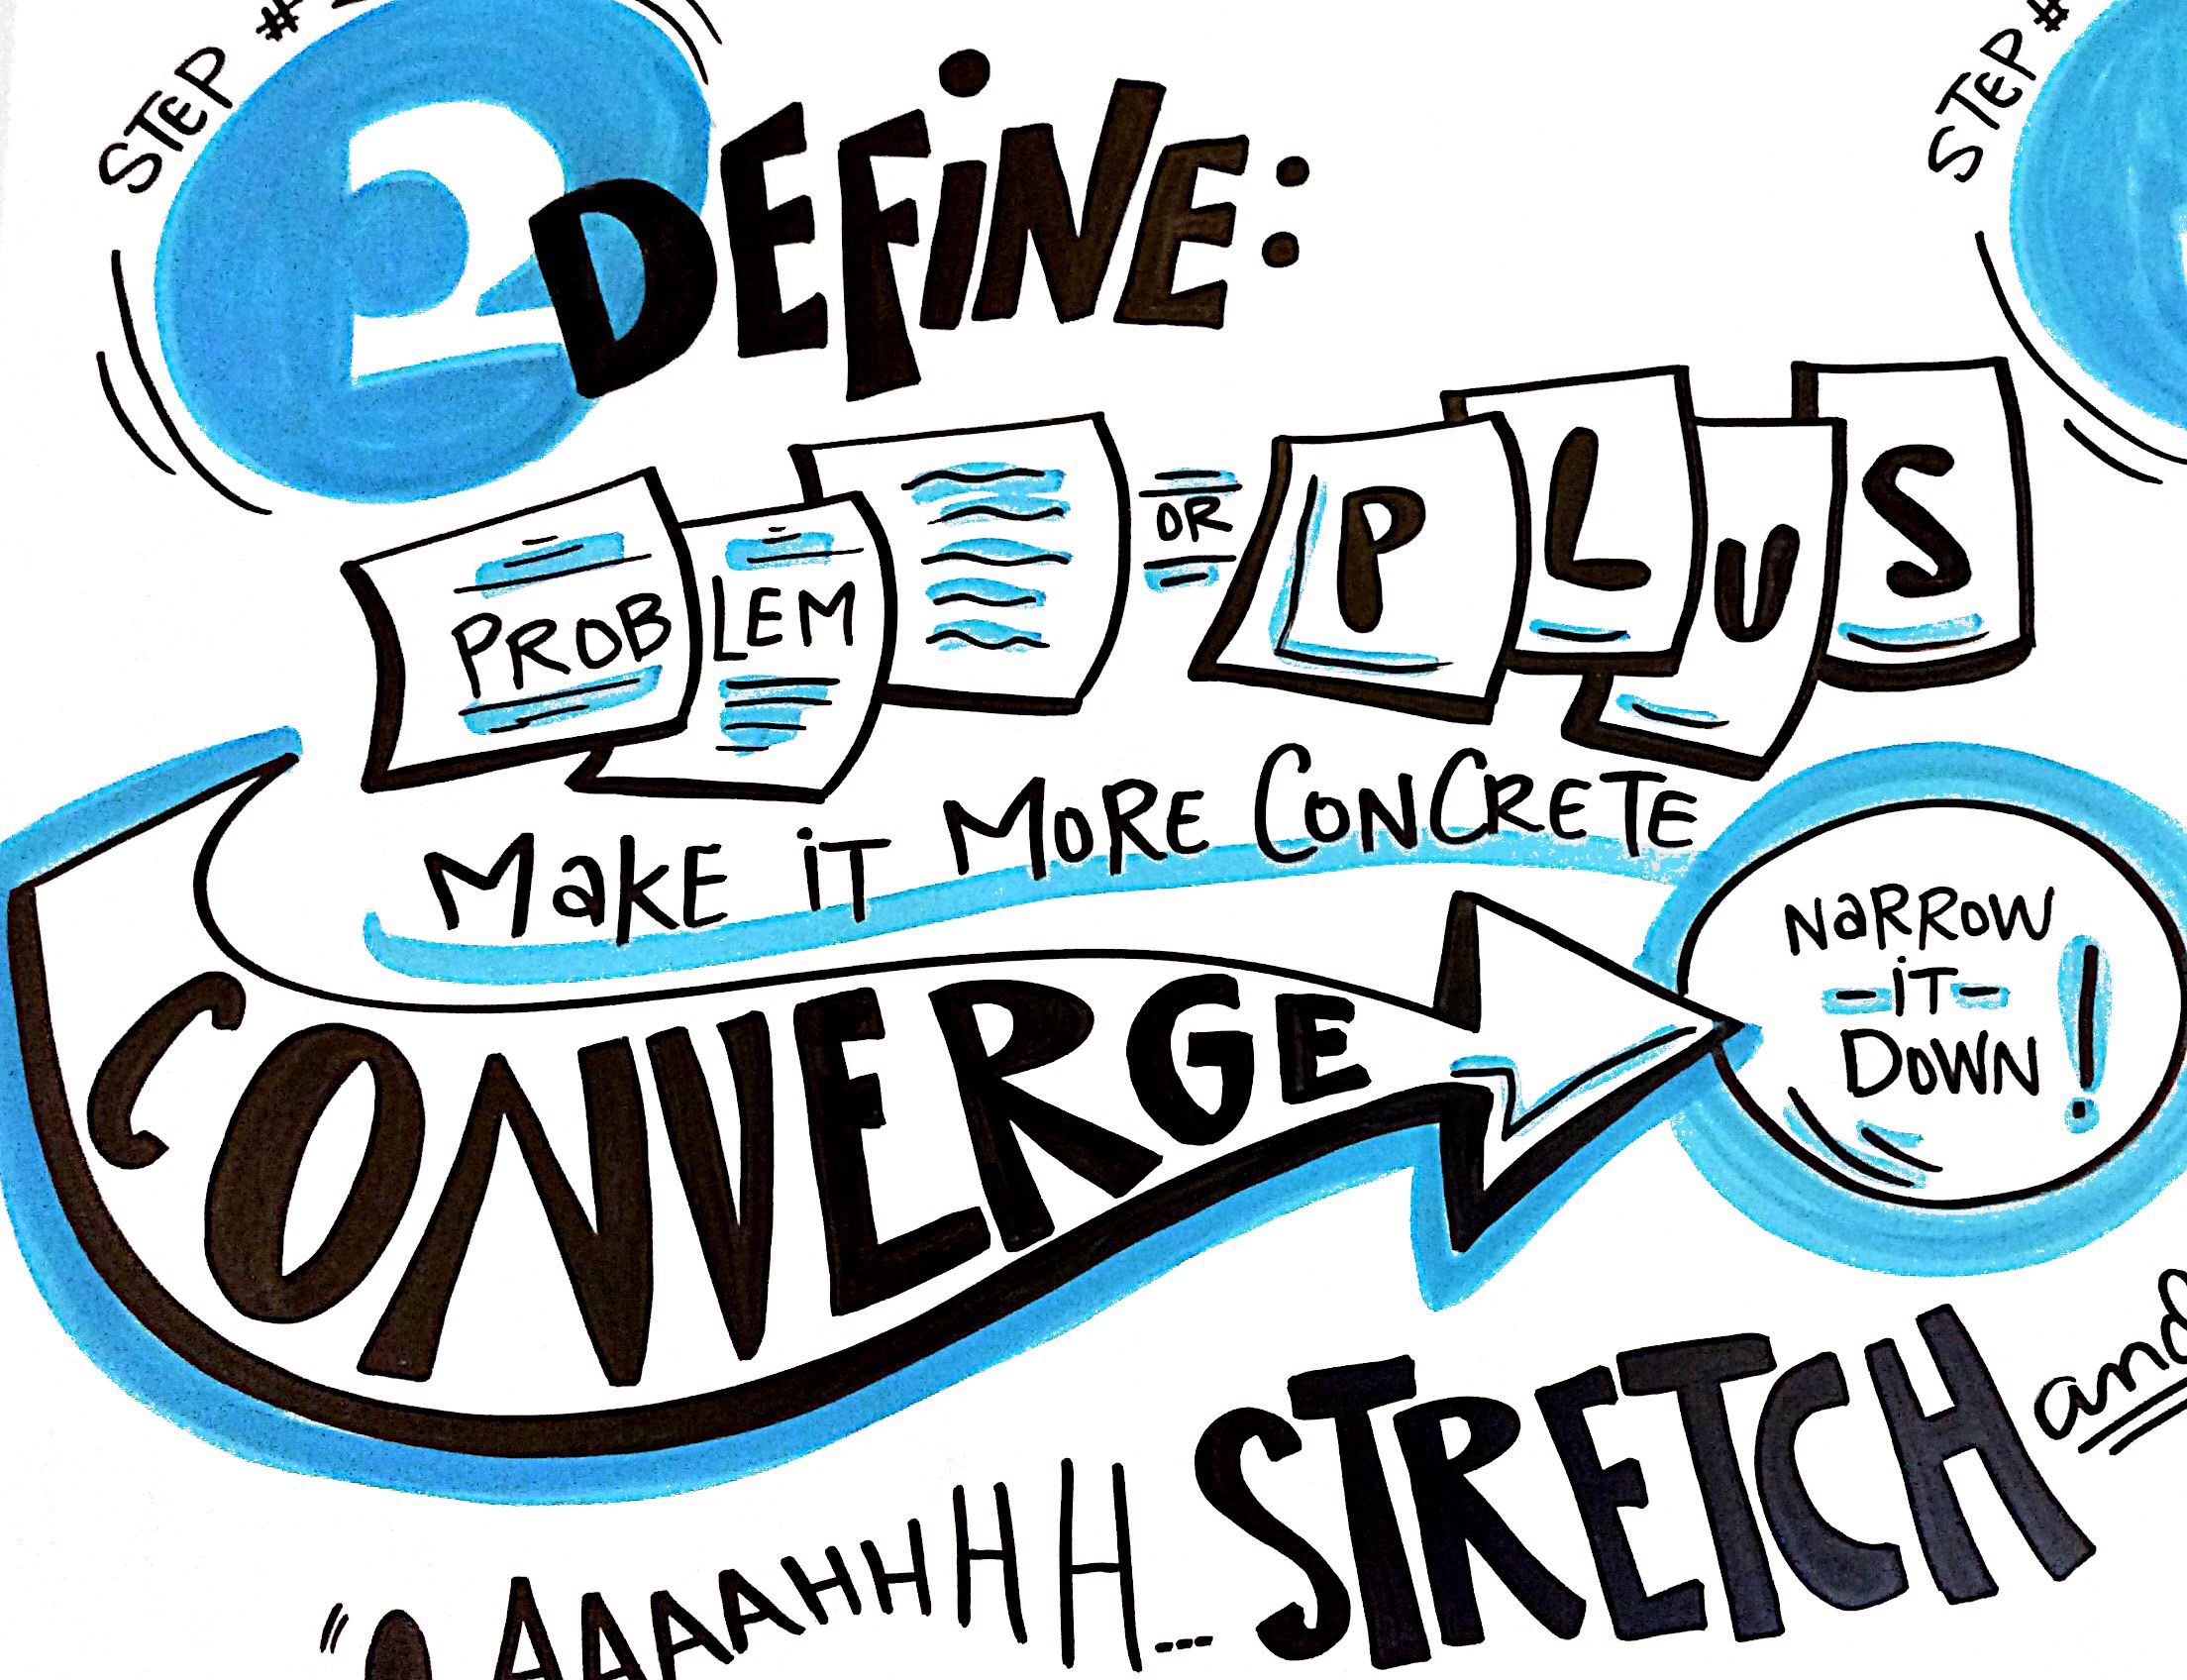 STEP #
2
DEFiNE:
STEP #
PROBLEM OR PLUS
MaKE iT MORE CONCRETE
CONVERGE
NaRROW
-iT-
DOWN!
AAAAAHHHHH... STRETCH and